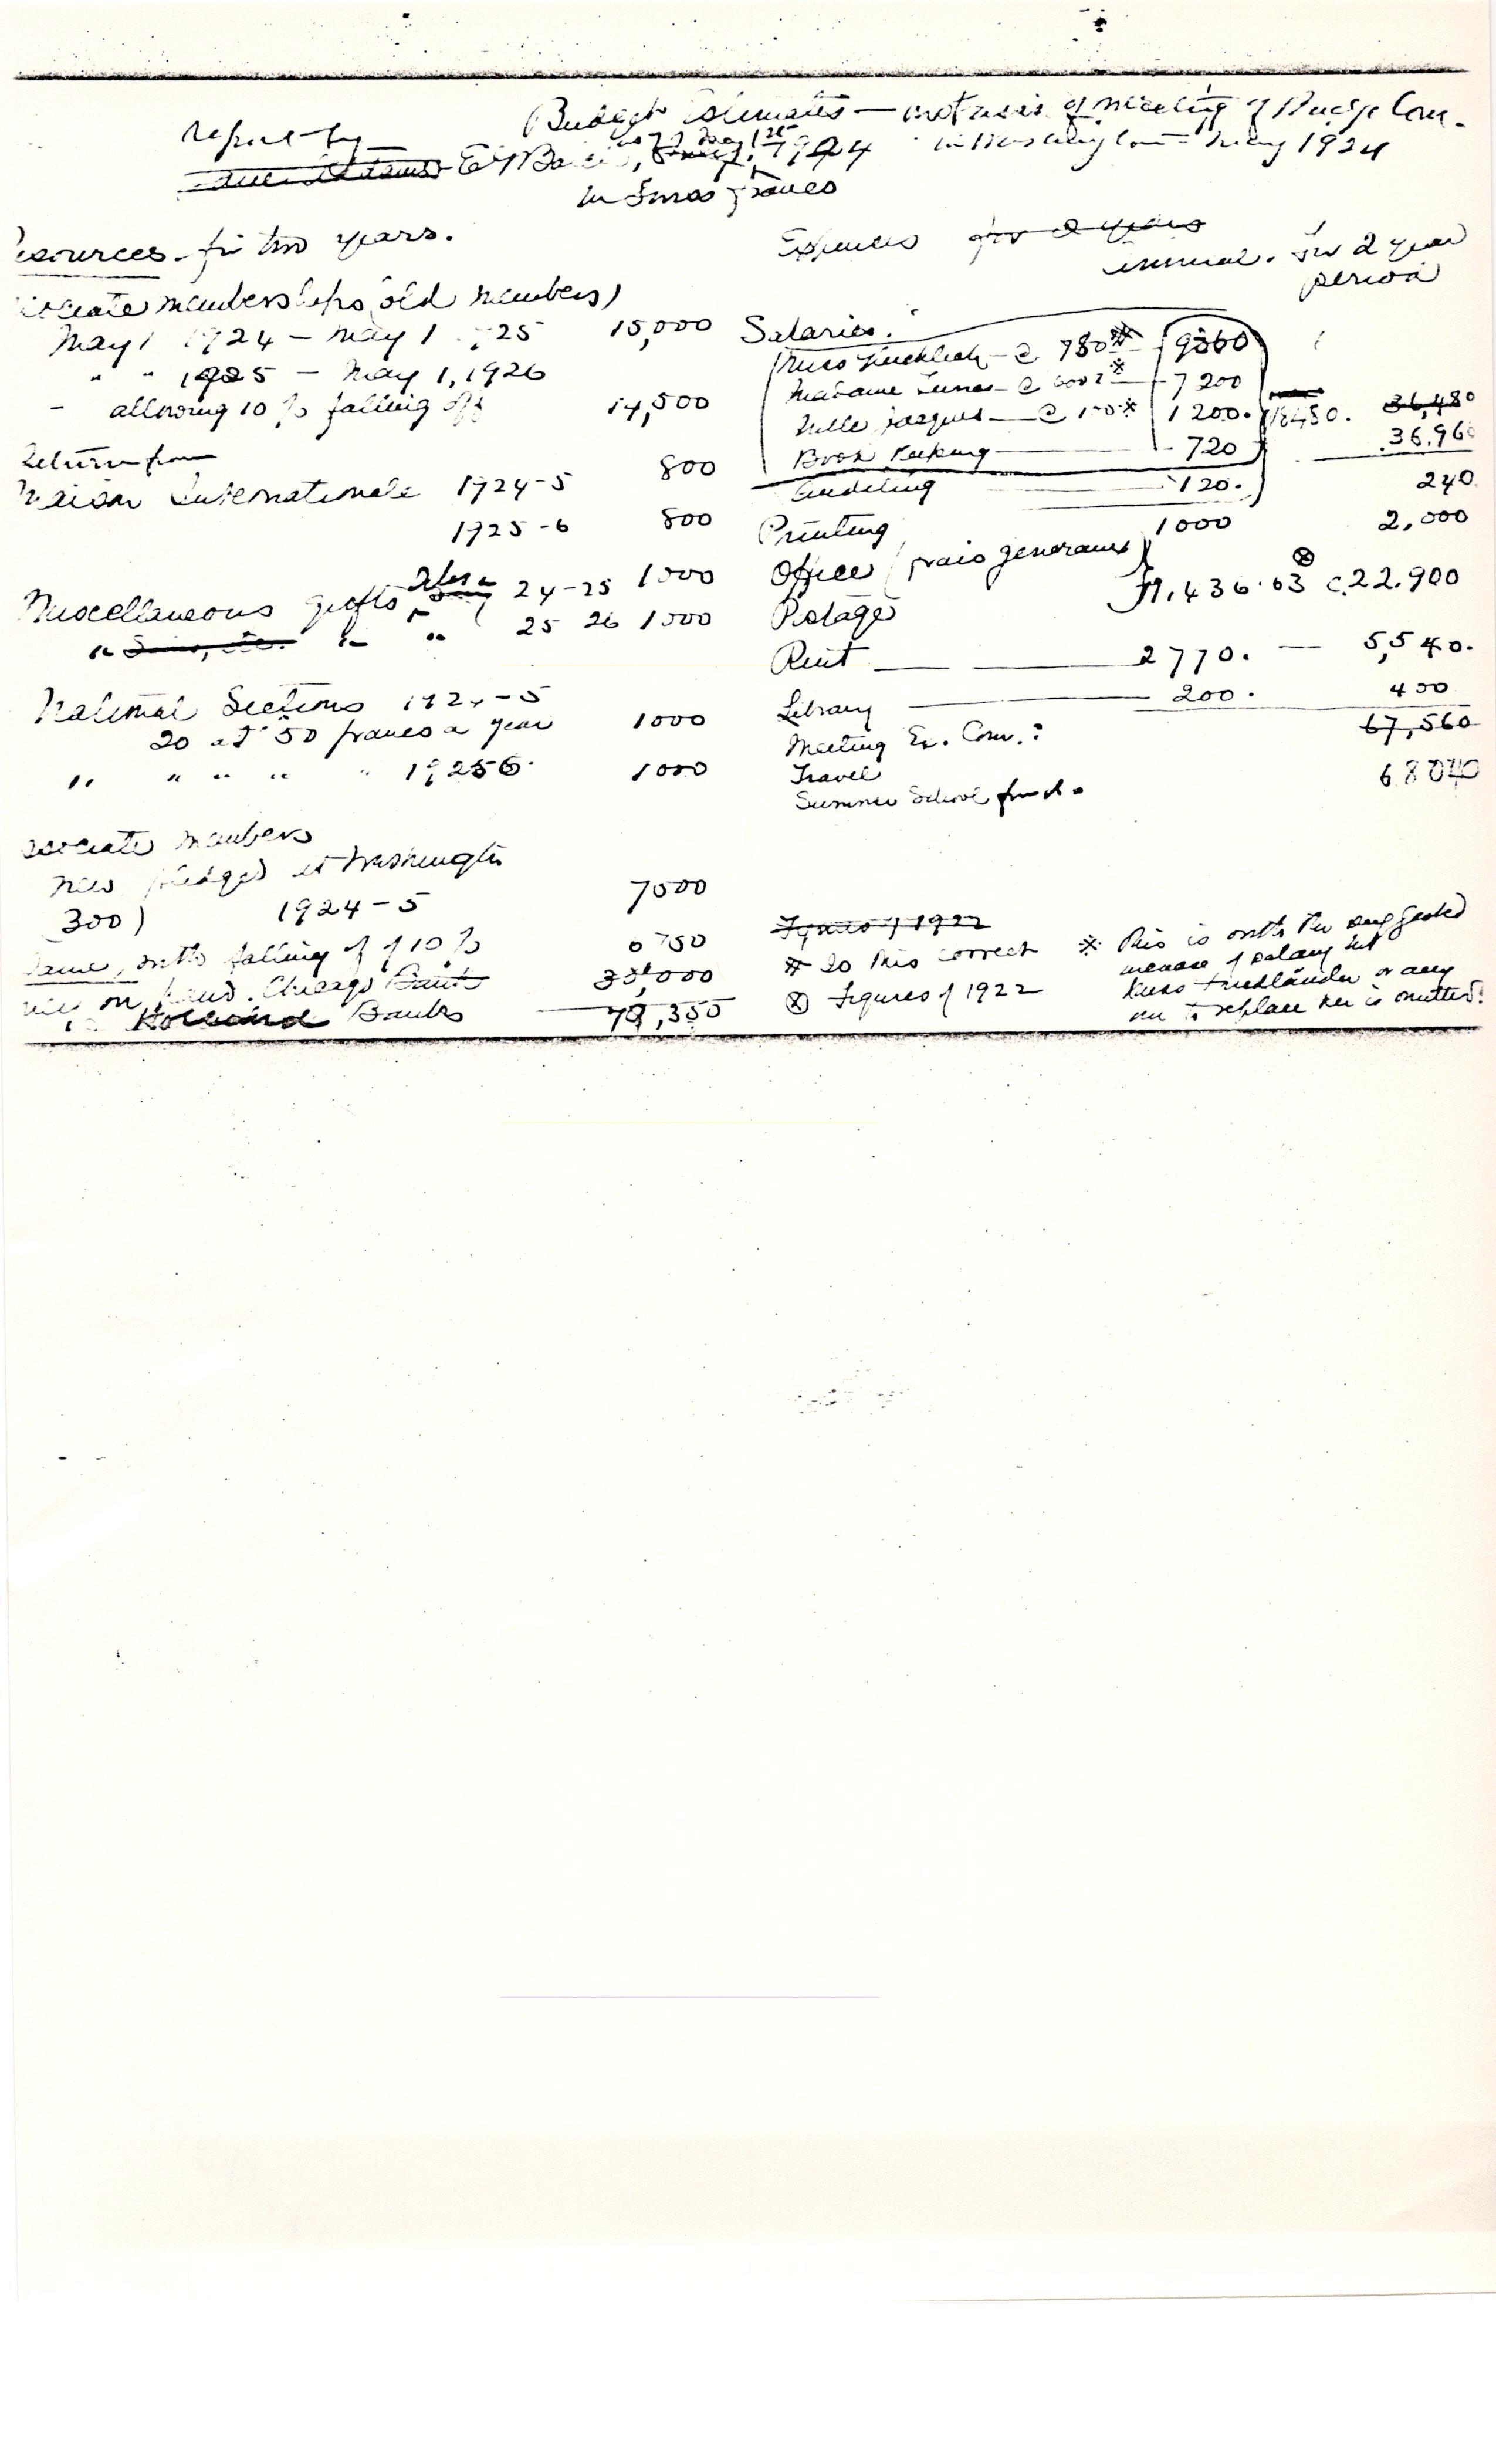 Budget Estimates — of meeting of Budget Com.
report by
May 1st 1924 in Washington — May 1924
In Swiss francs
Resources - for two years.
Expenses for 2 years
annual. for 2 year
period
Associate memberships (old members)
May 1 1924 — May 1 1925 15,000
" " 1925 — May 1, 1926
- allowing 10 % falling off 14,500
Return from
Maison Internationale 1924-5 800
1925-6 800
Miscellaneous gifts 24-25 1000
" " " 25 26 1000
National Sections 1924-5
20 at 50 francs a year 1000
" " " " " 19256. 1000
Associate members
new pledged at Washington
300) 1924-5 7500
Same, with falling off of 10 % 6750
on hand. Chicago Bank 000
Holland Banks ,350
Salaries.
Miss @ 780 * 9360
Madame @ 600 * 7200
Mlle Jacques — @ 100 * 1200. 18480. 36,480
Book Keeping — 720 36.960
Auditing — 120. 240
Printing 1000 2,000
Office (frais generaux)
Postage 11.436.63 ⊗ c.22.900
Rent — 2770. — 5,540.
Library — 200. 400
67,560
Meeting Ex. Com.:
Travel
Summer School fund.
Figures of 1922
* Is this correct
⊗ Figures of 1922
* This is with the suggested
increase of salary but
Miss Friedländer or any
one to replace her is omitted.